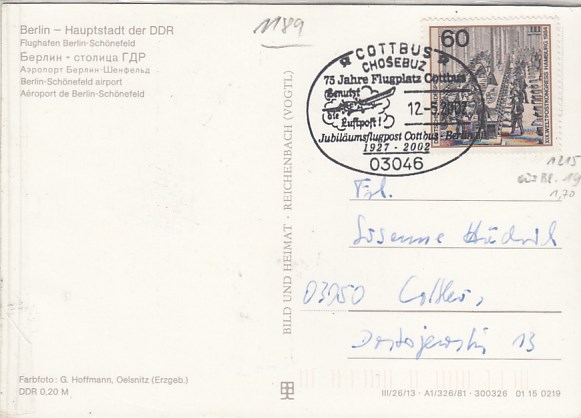 Berlin – Hauptstadt der DDR
Flughafen Berlin-Schönefeld
Берлин - столица ГДР
Аэропорт Берлин-Шенфельд
Berlin-Schönefeld airport
Aéroport de Berlin-Schönefeld
1189
60
COTTBUS
CHOŚEBUZ
75 Jahre Flugplatz Cottbus
Benutzt
die
Luftpost!
12-5.2002
Jubiläumsflugpost Cottbus - Berlin
1927 - 2002
03046
XIX. WELTPOSTKONGRESS HAMBURG 1984
1215
1,70
BILD UND HEIMAT · REICHENBACH (VOGTL)
Frl.
Susanne
Cottbus,
Dostojewski 13
Farbfoto: G. Hoffmann, Oelsnitz (Erzgeb.)
DDR 0,20 M
III/26/13 · A1/326/81 · 300326 01 15 0219